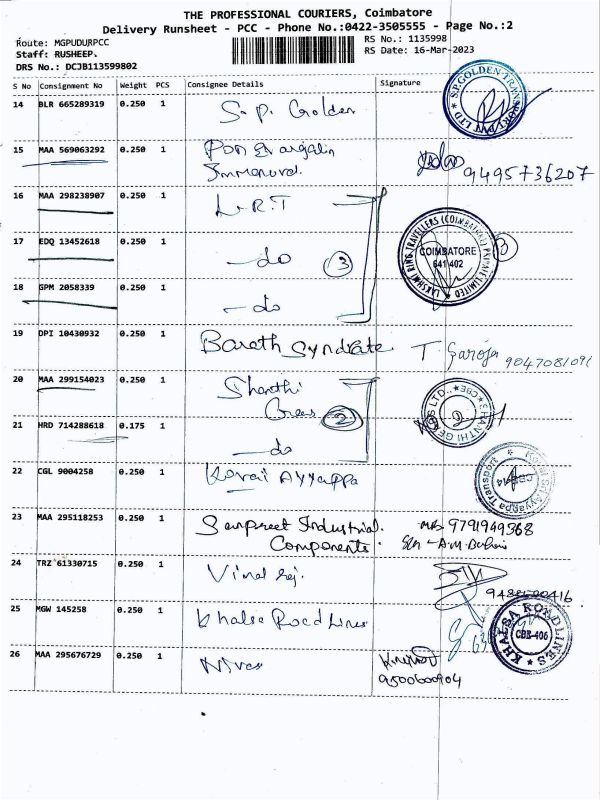 THE PROFESSIONAL COURIERS, Coimbatore
Delivery Runsheet - PCC - Phone No.:0422-3505555 - Page No.:2
Route: MGPUDURPCC
RS No.: 1135998
Staff: RUSHEEP.
RS Date: 16-Mar-2023
DRS No.: DCJB113599802
S No Consignment No Weight PCS Consignee Details Signature
14 BLR 665289319 0.250 1 S. P. Golden
S.P.GOLDEN TRANSPORT PVT LTD
15 MAA 569063292 0.250 1
9495736207
16 MAA 298238907 0.250 1 L.R.T
LAKSHMI RING TRAVELLERS (COIMBATORE) PRIVATE LIMITED
COIMBATORE
641 402
3
17 EDQ 13452618 0.250 1 -do 3
18 GPM 2058339 0.250 1 -do
19 DPI 10430932 0.250 1 Barath Syndicate T. Saroja
20 MAA 299154023 0.250 1 Shanthi
Gears 2
SHANTHI GEARS LTD., CBE
21 HRD 714288618 0.175 1 -do
22 CGL 9004258 0.250 1 Kovai Ayyappa
Kovai Sri Ayyappa Transport
23 MAA 295118253 0.250 1 Sanpreet Industrial mb 9791949368
Components.
24 TRZ 61330715 0.250 1
25 MGW 145258 0.250 1 Khalsa Road Lines
KHALSA ROADLINES
CBE-406
26 MAA 295676729 0.250 1
9500600904